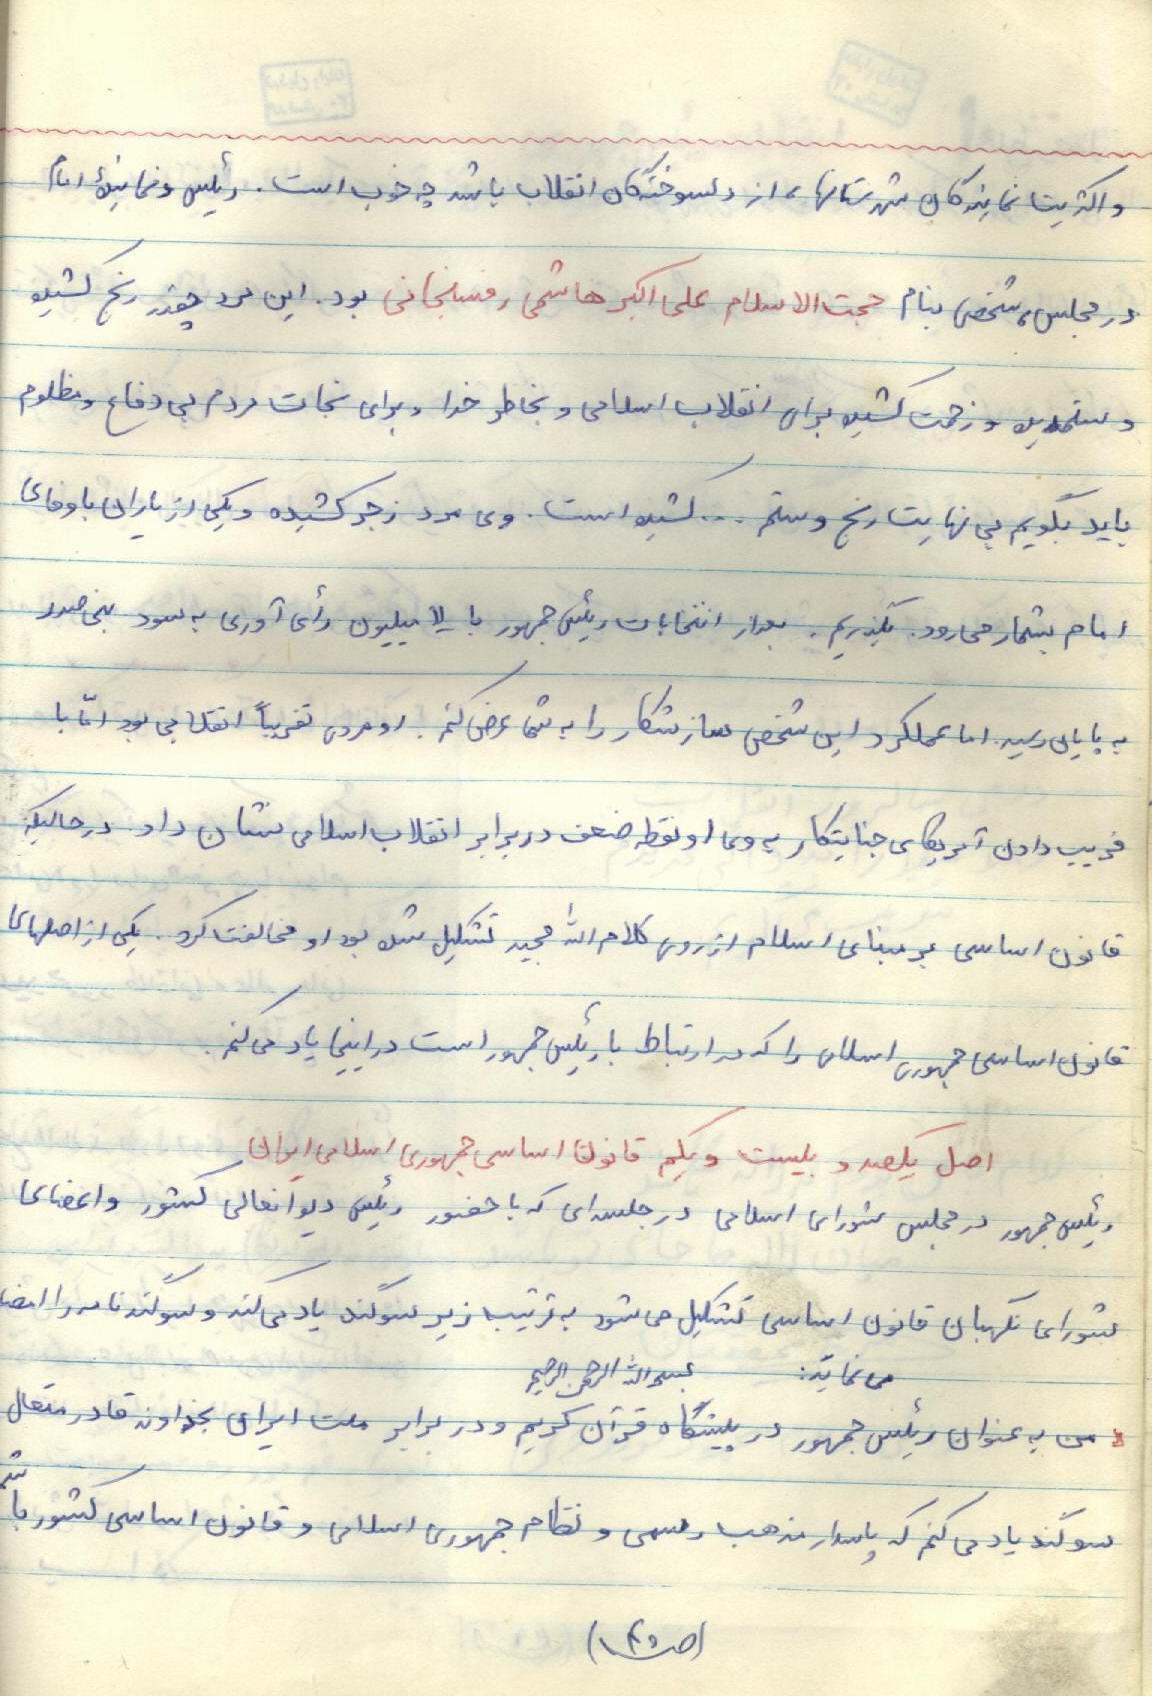 و اکثریت نمایندگان شهرستانها، از دلسوختگان انقلاب باشد چه خوب است. رئیس و نمایندۀ امام
در مجلس، شخصی بنام حجت الاسلام علی اکبر هاشمی رفسنجانی بود. این مرد چقدر رنج کشیده
و ستمدیده و زحمت کشیده برای انقلاب اسلامی و بخاطر خدا و برای نجات مردم بی دفاع و مظلوم
باید بگویم بی نهایت رنج و ستم ... کشیده است. وی مرد زجر کشیده و یکی از یاران باوفای
امام بشمار می رود. بگذریم. بعد از انتخابات رئیس جمهور با میلیون رأی آوری به سود بنی صدر
به پایان رسید. اما عملکرد این شخص سازشکار را به شما عرض کنم. او مردی تقریباً انقلابی بود امّا با
فریب دادن آمریکای جنایتکار به وی او نقطه ضعف در برابر انقلاب اسلامی نشان داد در حالیکه
قانون اساسی بر مبنای اسلام از روی کلام الله مجید تشکیل شده بود او مخالفت کرد. یکی از اصلهای
قانون اساسی جمهوری اسلامی را که در ارتباط با رئیس جمهور است در اینجا یاد می کنم.
اصل یکصد و بیست و یکم قانون اساسی جمهوری اسلامی ایران
رئیس جمهور در مجلس شورای اسلامی در جلسه ای که با حضور رئیس دیوانعالی کشور و اعضای
شورای نگهبان قانون اساسی تشکیل می شود به ترتیب زیر سوگند یاد می کند و سوگندنامه را امضاء
می نماید: بسم الله الرحمن الرحیم
من به عنوان رئیس جمهور در پیشگاه قرآن کریم و در برابر ملت ایران بخداوند قادر متعال
سوگند یاد می کنم که پاسدار مذهب رسمی و نظام جمهوری اسلامی و قانون اساسی کشور باشم